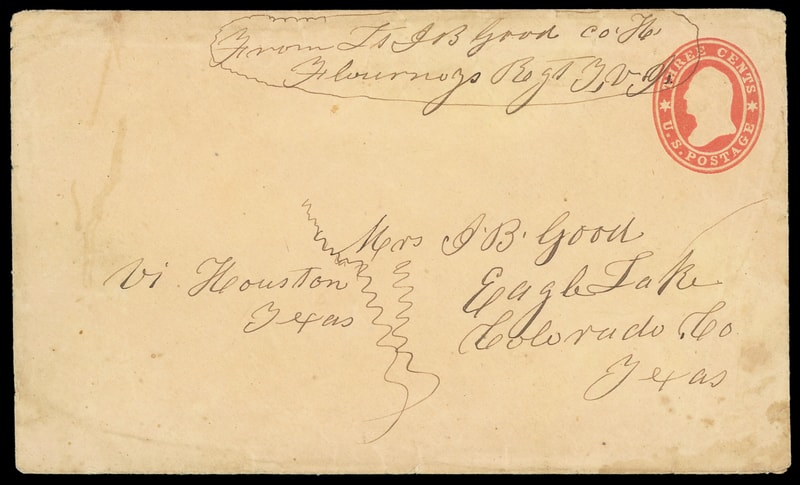 From Lt J B Good co. H.
Flournoys Regt T, V, I,
THREE CENTS
U.S. POSTAGE
Mrs J. B. Good
Vi Houston
Texas
Eagle Lake
Colorado Co
Texas